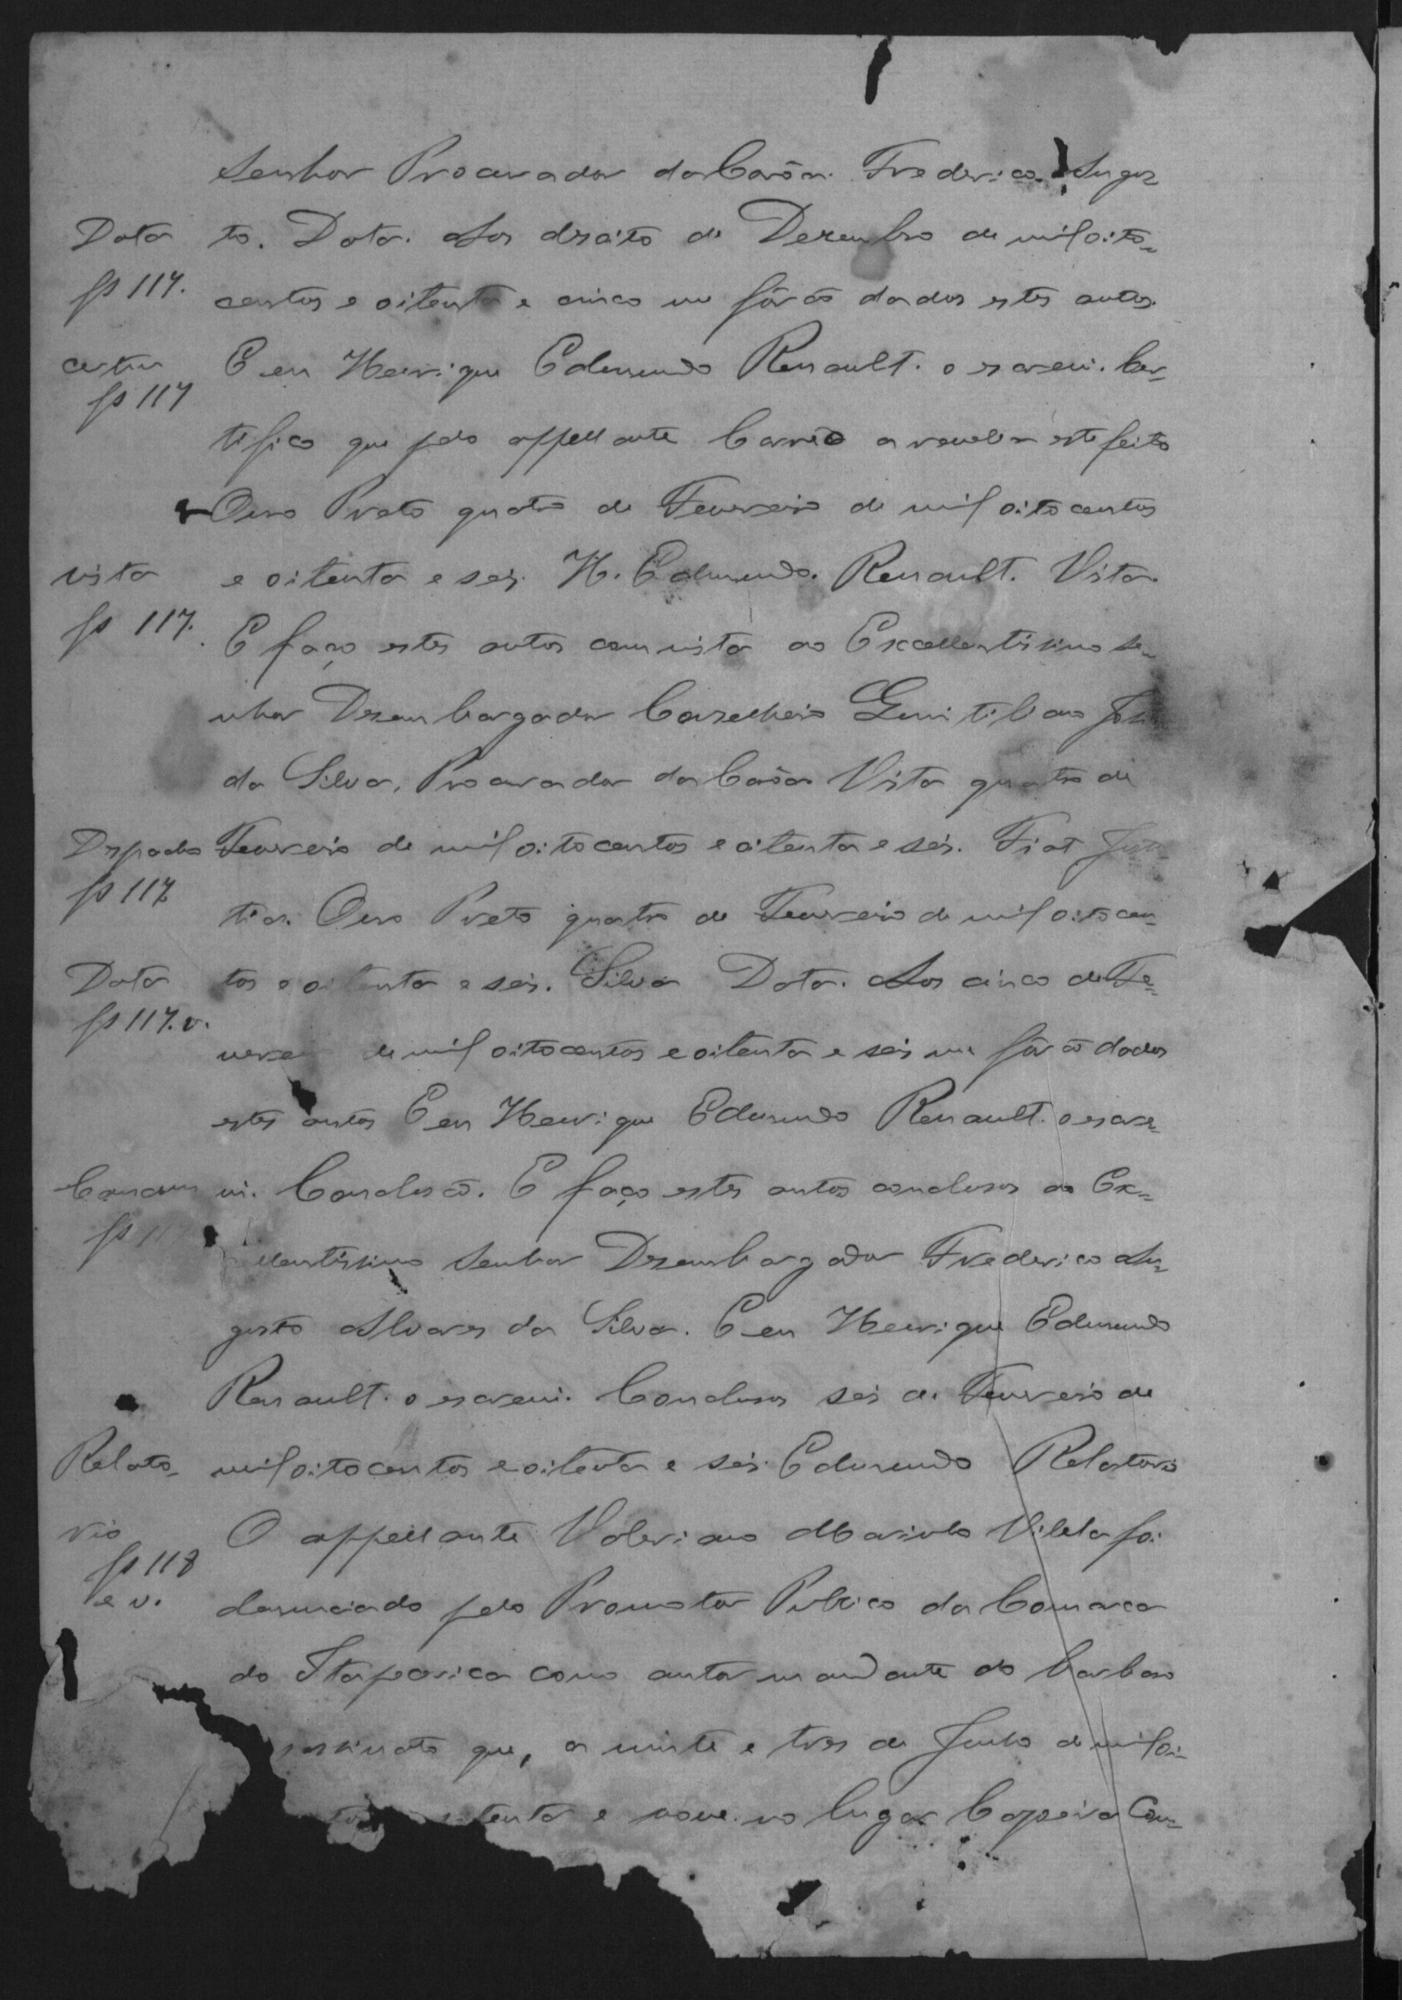 Senhor Procurador da Corôa. Frederico Augus-
Data to. Data. Aos dezoito de Dezembro de mil oito-
fs 117. centos e oitenta e cinco me fôrão dados estes autos.
certão E eu Henrique Edmundo Renault. o escrevi. Cer-
fs 117
tifico que pelo appellante Correo a revelia este feito
Ouro Preto quatro de Fevereiro de mil oitocentos
vista e oitenta e seis. H. Edmundo. Renault. Vista.
fs 117. E faço estes autos com vista ao Excellentissimo Se-
nhor Dezembargador Conselheiro Quintiliano José
da Silva, Procurador da Corôa Vista quatro de
Dspacho Fevereiro de mil oitocentos e oitenta e seis. Fiat Justi
fs 117
tia. Ouro Preto quatro de Fevereiro de mil oitocen-
Data tos e oitenta e seis. Silva Data. Aos cinco de Fe-
fs 117.v.
vere de mil oitocentos e oitenta e seis me fôrão dados
estes autos E eu Henrique Edmundo Renault. o escre-
vi. Conclusão. E faço estes autos conclusos ao Ex-
fs 11
llentissimo Senhor Dezembargador Frederico Au-
gusto Alvares da Silva. E eu Henrique Edmundo
Renault. o escrevi. Conclusos seis de Fevereiro de
Relato- mil oitocentos e oitenta e seis. Edmundo Relatorio
rio O appellante Valeriano Manso Vilela foi
fs 118
e v. denunciado pelo Promotor Publico da Comarca
do Itapecerica como autor mandante do barbaro
ssassinato que, a vinte e tres de Junho de mil oi-
tenta e nove. no lugar Capoeira Com-